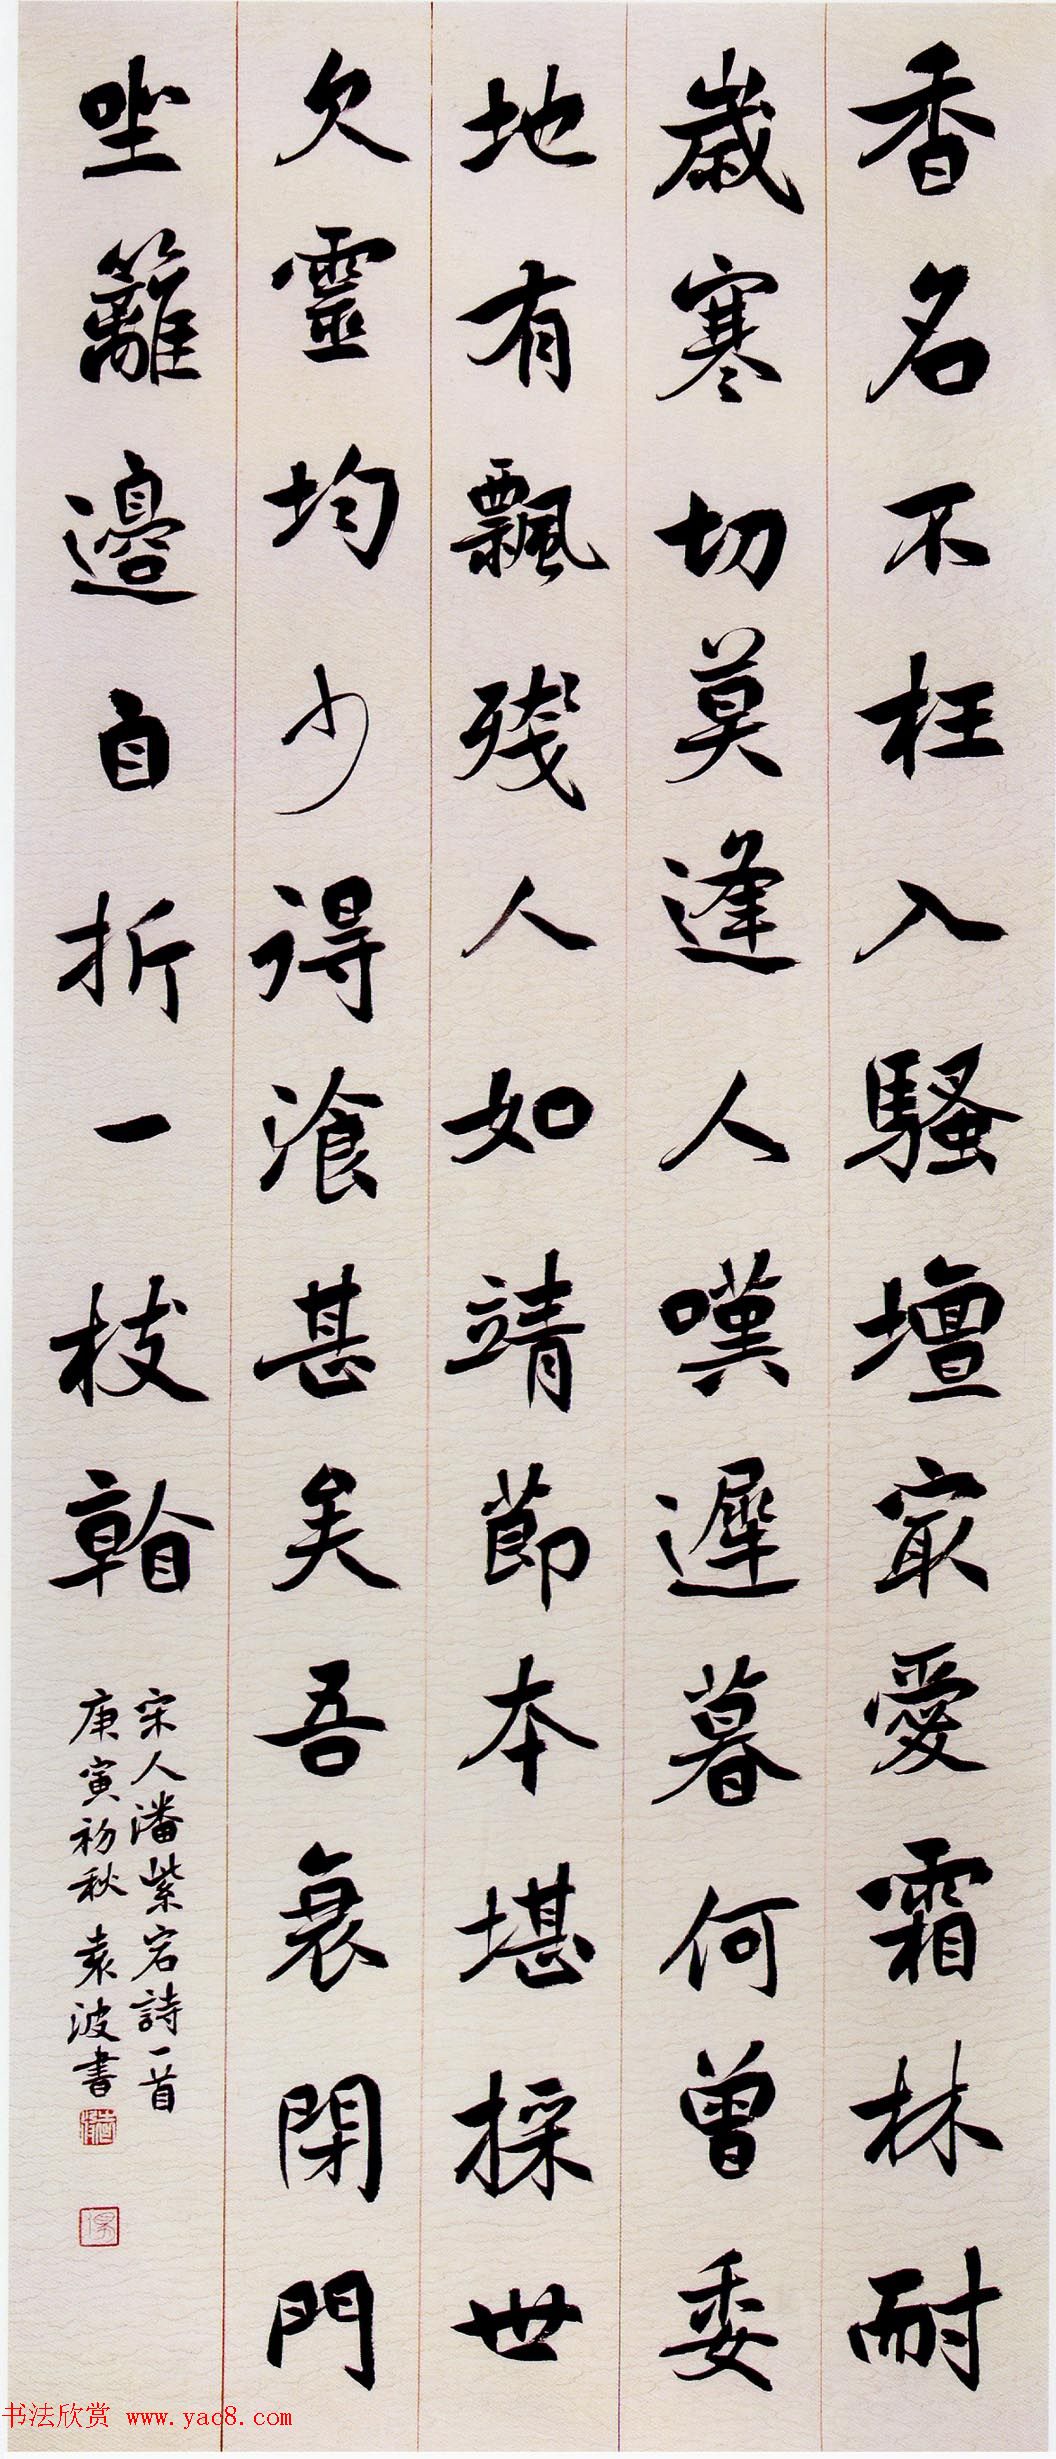 香名不枉入騷壇寂愛霜林耐
歲寒切莫逢人嘆遲暮何曾委
地有飄殘人如靖節本堪採世
欠靈均少得湌甚矣吾衰閉門
坐籬邊自折一枝榦
宋人潘紫岩詩一首
庚寅初秋袁波書
书法欣赏 www.yac8.com